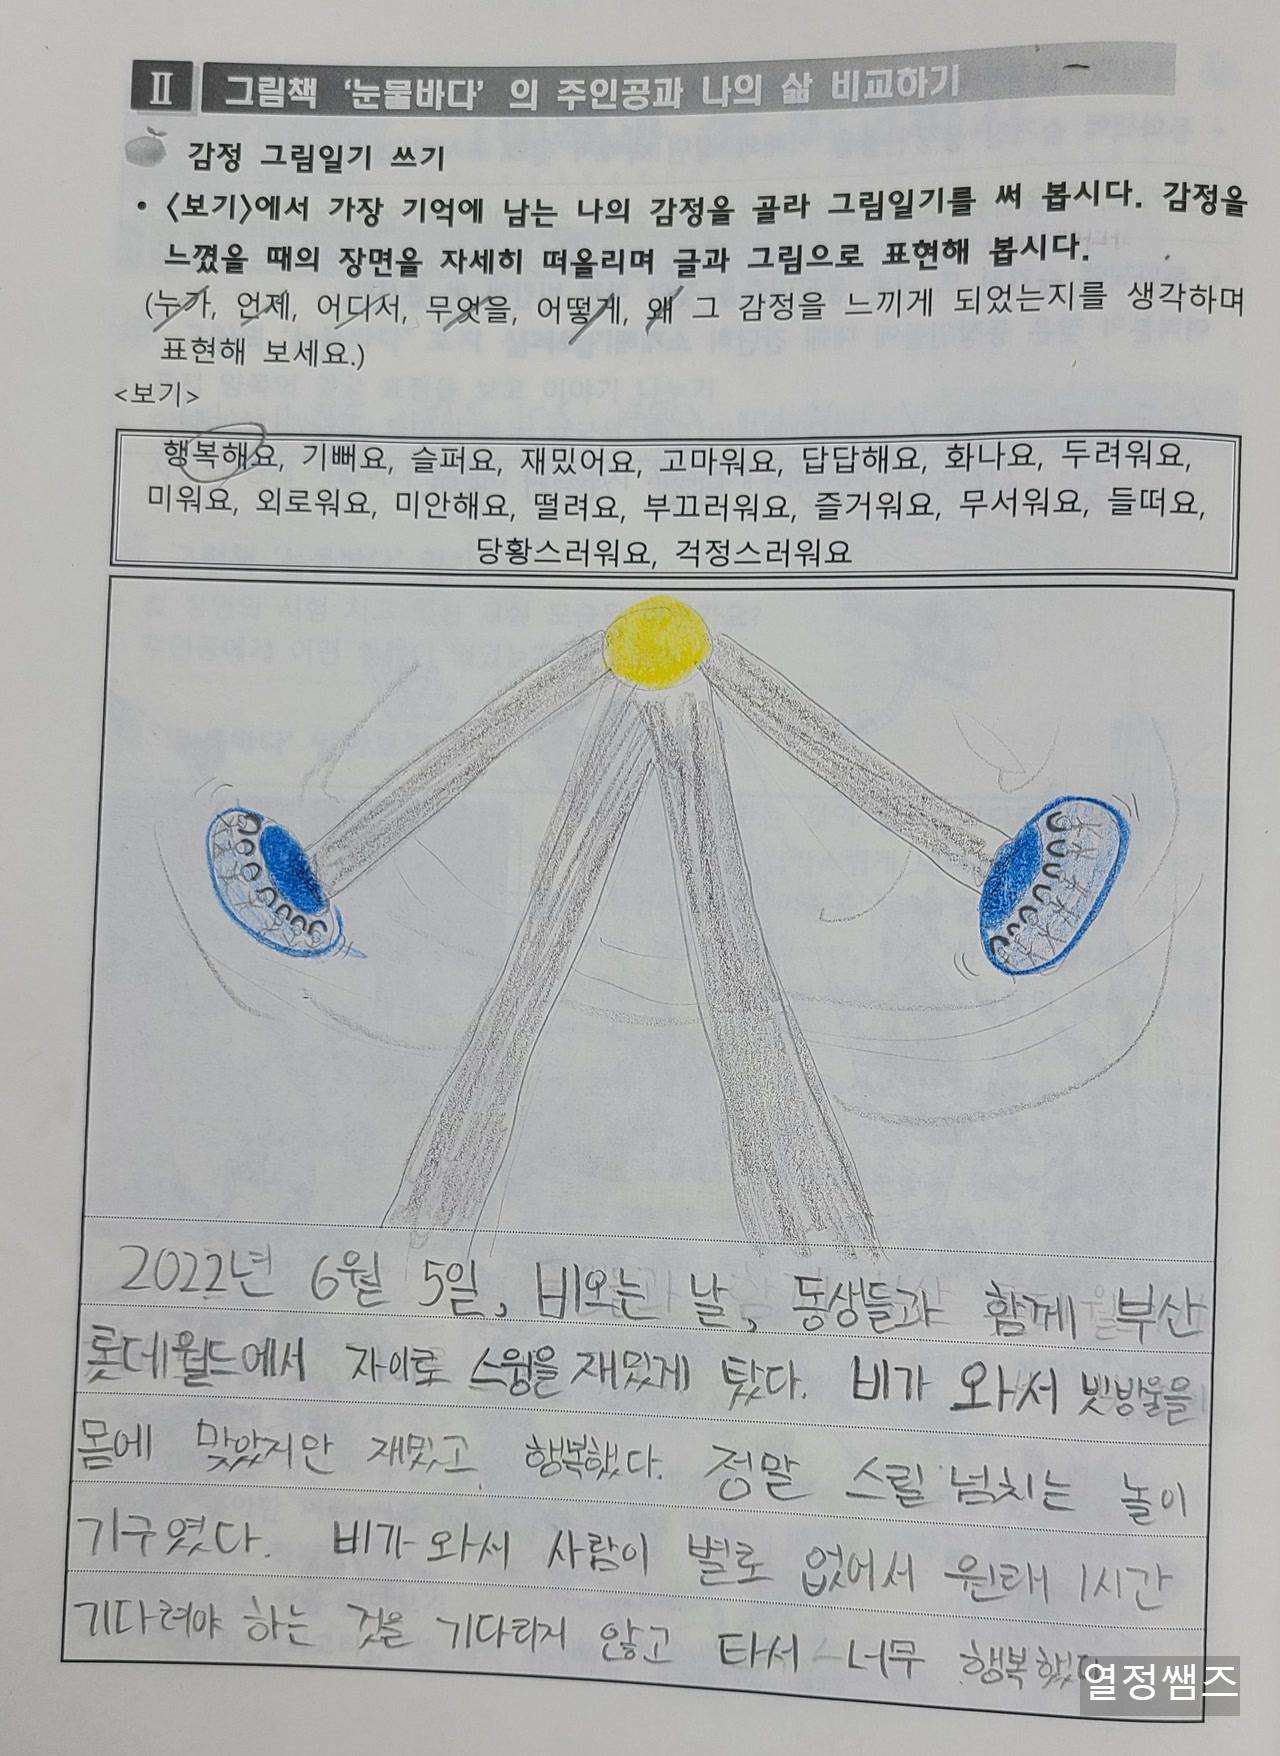 Ⅱ 그림책 ‘눈물바다’ 의 주인공과 나의 삶 비교하기
감정 그림일기 쓰기
• <보기>에서 가장 기억에 남는 나의 감정을 골라 그림일기를 써 봅시다. 감정을
느꼈을 때의 장면을 자세히 떠올리며 글과 그림으로 표현해 봅시다.
(누가, 언제, 어디서, 무엇을, 어떻게, 왜 그 감정을 느끼게 되었는지를 생각하며
표현해 보세요.)
<보기>
행복해요, 기뻐요, 슬퍼요, 재밌어요, 고마워요, 답답해요, 화나요, 두려워요,
미워요, 외로워요, 미안해요, 떨려요, 부끄러워요, 즐거워요, 무서워요, 들떠요,
당황스러워요, 걱정스러워요
2022년 6월 5일, 비오는 날, 동생들과 함께 부산
롯데월드에서 자이로 스윙을 재밌게 탔다. 비가 와서 빗방울을
몸에 맞았지만 재밌고 행복했다. 정말 스릴 넘치는 놀이
기구였다. 비가 와서 사람이 별로 없어서 원래 1시간
기다려야 하는 것을 기다리지 않고 타서 너무 행복했다
열정쌤즈